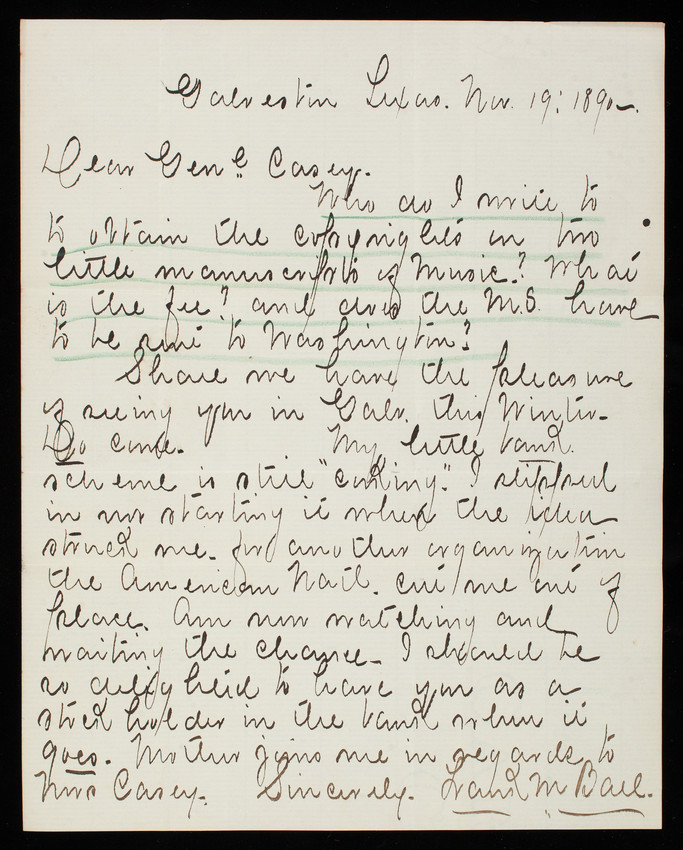 Galveston Texas. Nov. 19: 1890.
Dear Genl. Casey.
Who do I write to
to obtain the copyrights on two
little manuscripts of Music? What
is the fee? and does the M.S. have
to be sent to Washington?
Shall we have the pleasure
of seeing you in Galv. this Winter.
Do come. My little bank
scheme is still "cooking". I slipped
in not starting it when the idea
struck me. for another organization
the American Natl. cut me out of
place. Am now watching and
waiting the chance. I should be
so delighted to have you as a
stock holder in the bank when it
goes. Mother joins me in regards to
Mrs Casey. Sincerely. Frank M Ball.